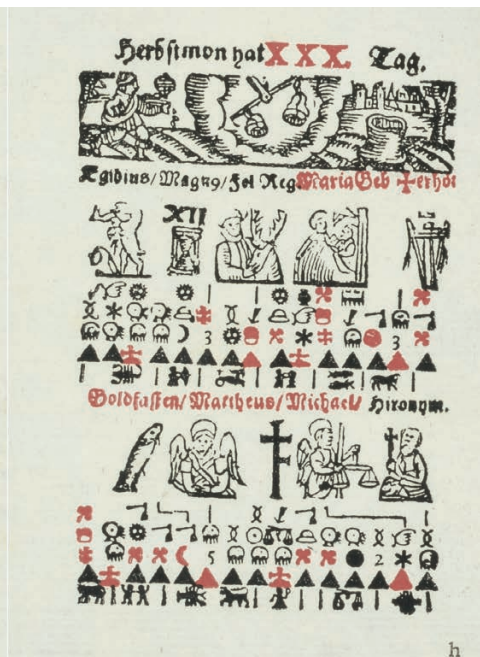 Herbstmon hat XXX. Tag.
Egidius/Magn9/Fel Reg MariaGeb ✝erhöt
XII
3 3
Goldfasten/Mattheus/Michael/ Hironym.
5 2
h